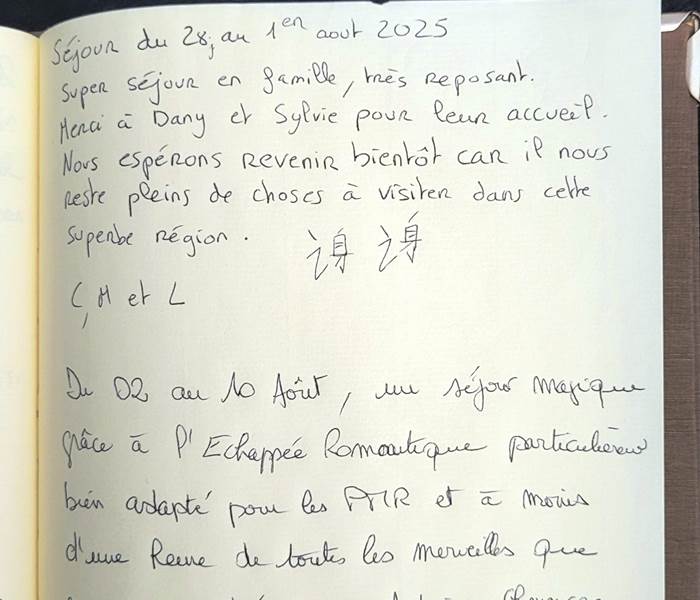 Séjour du 28, au 1er aout 2025
Super séjour en famille, très reposant.
Merci à Dany et Sylvie pour leur accueil.
Nous espérons revenir bientôt car il nous
reste pleins de choses à visiter dans cette
superbe région.
C, M et L
Du 02 au 10 Août, un séjour magique
grâce à l'Echappée Romantique particulièrement
bien adapté pour les PMR et à moins
d'une heure de toutes les merveilles que